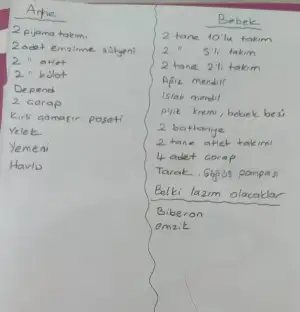 Anne
2 pijama takımı
2 adet emzirme sütyeni
2 " atlet
2 " külot
Depend
2 çorap
Kirli çamaşır poşeti
Yelek
Yemeni
Havlu
Bebek
2 tane 10'lu takım
2 " 5'li takım
2 tane 2'li takım
Ağız mendili
Islak mendil
pişik kremi, bebek bezi
2 battaniye
2 tane atlet takımı
4 adet çorap
Tarak, Göğüs pompası
Belki lazım olacaklar
Biberon
emzik